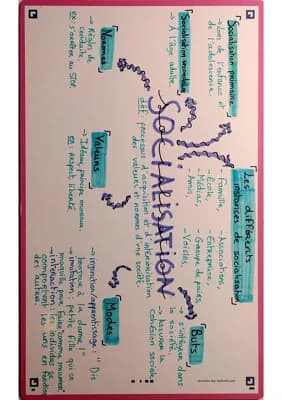 Socialisation primaire
→ Lors de l'enfance et
de l'adolescence.
Socialisation secondaire
→ À l'âge adulte.
Les différents
instances de socialisation
- Famille,
- École,
- Médias,
- Amis,
- Associations,
- Entreprises,
- Groupe de paires,
- Voisins.
Buts
→ s'intégrer dans
la société.
→ Assurer la
cohésion sociale.
SOCIALISATION
déf: processus d'acquisition et d'intériorisation
des valeurs et normes d'une société.
Normes
→ Règles de
conduite.
ex: s'arrêter au STOP.
Valeurs
→ Idéaux, principe moraux.
ex: respect, liberté.
Modes
→ injonction/apprentissage: "Dis
bonjour à la dame!"
→ imitation: petite fille qui se
maquille pour faire "comme maman"
→ interactions: les individus se
comportent les uns en fonction
des autres.